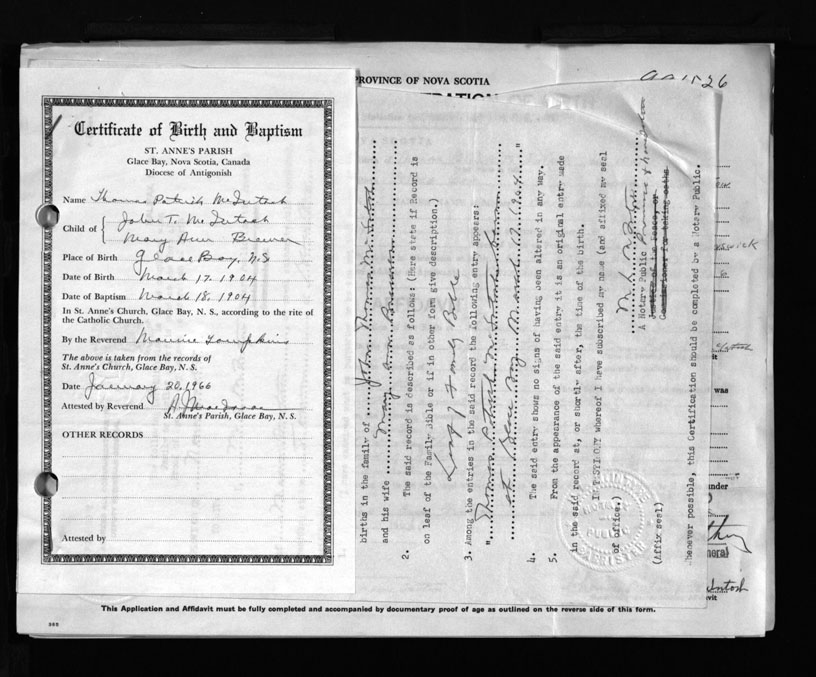 PROVINCE OF NOVA SCOTIA
Certificate of Birth and Baptism
ST. ANNE'S PARISH
Glace Bay, Nova Scotia, Canada
Diocese of Antigonish
Name Thomas Patrick McIntosh
Child of { John T. McIntosh
Mary Ann Brewer
Place of Birth Glace Bay, N.S
Date of Birth March 17, 1904
Date of Baptism March 18, 1904
In St. Anne's Church, Glace Bay, N. S., according to the rite of
the Catholic Church.
By the Reverend Maurice Tompkins
The above is taken from the records of
St. Anne's Church, Glace Bay, N. S.
Date January 20, 1966
Attested by Reverend
St. Anne's Parish, Glace Bay, N. S.
OTHER RECORDS
Attested by
births in the family of John Thomas McIntosh
and his wife Mary Ann
2. The said record is described as follows: (Here state if Record is
on leaf of the Family Bible or if in other form give description.)
Leaf of Family Bible
3. Among the entries in the said record the following entry appears:
"Thomas Patrick McIntosh
at Glace Bay March 17, 1904"
4. The said entry shows no signs of having been altered in any way.
5. From the appearance of the said entry it is an original entry made
in the said record at, or shortly after, the time of the birth.
IN TESTIMONY whereof I have subscribed my name (and affixed my seal
of office.)
A Notary Public
Justice of the Peace, or
Commissioner for taking oaths.
(Affix seal)
Whenever possible, this Certification should be completed by a Notary Public.
was
under
This Application and Affidavit must be fully completed and accompanied by documentary proof of age as outlined on the reverse side of this form.